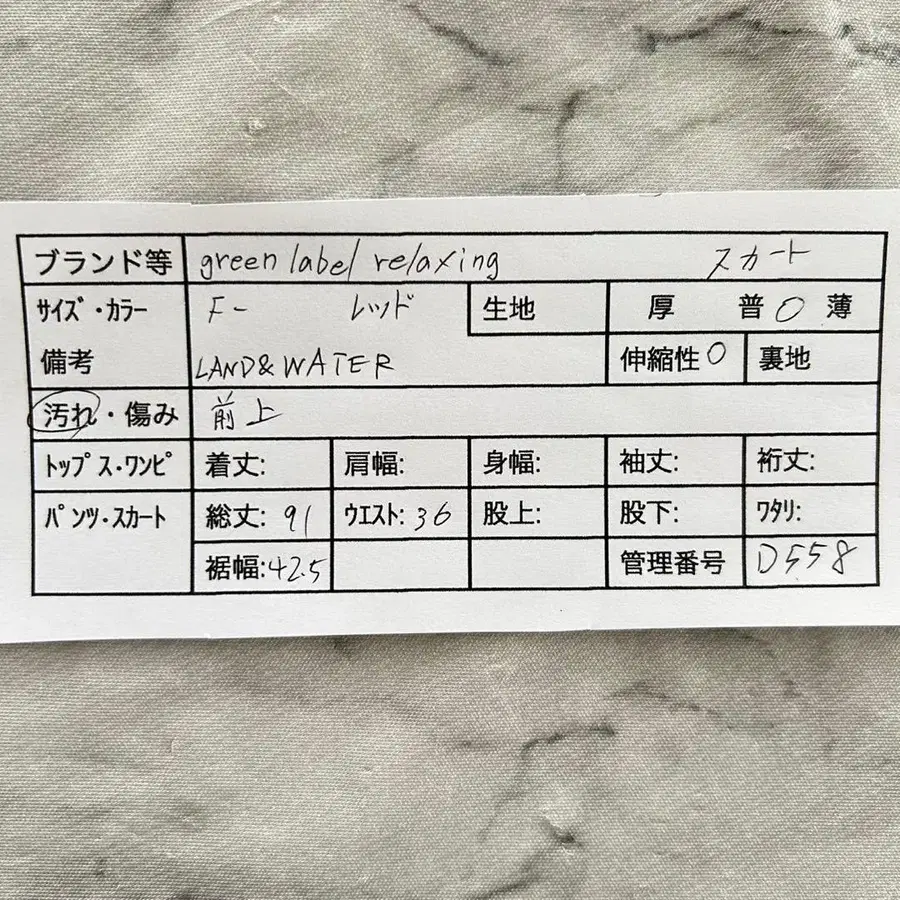 ブランド等 green label relaxing スカート
サイズ・カラー F- レッド 生地 厚 普○ 薄
備考 LAND&WATER 伸縮性○ 裏地
汚れ・傷み 前上
トップス・ワンピ 着丈: 肩幅: 身幅: 袖丈: 裄丈:
パンツ・スカート 総丈: 91 ウエスト: 36 股上: 股下: ワタリ:
裾幅:42.5 管理番号 D558